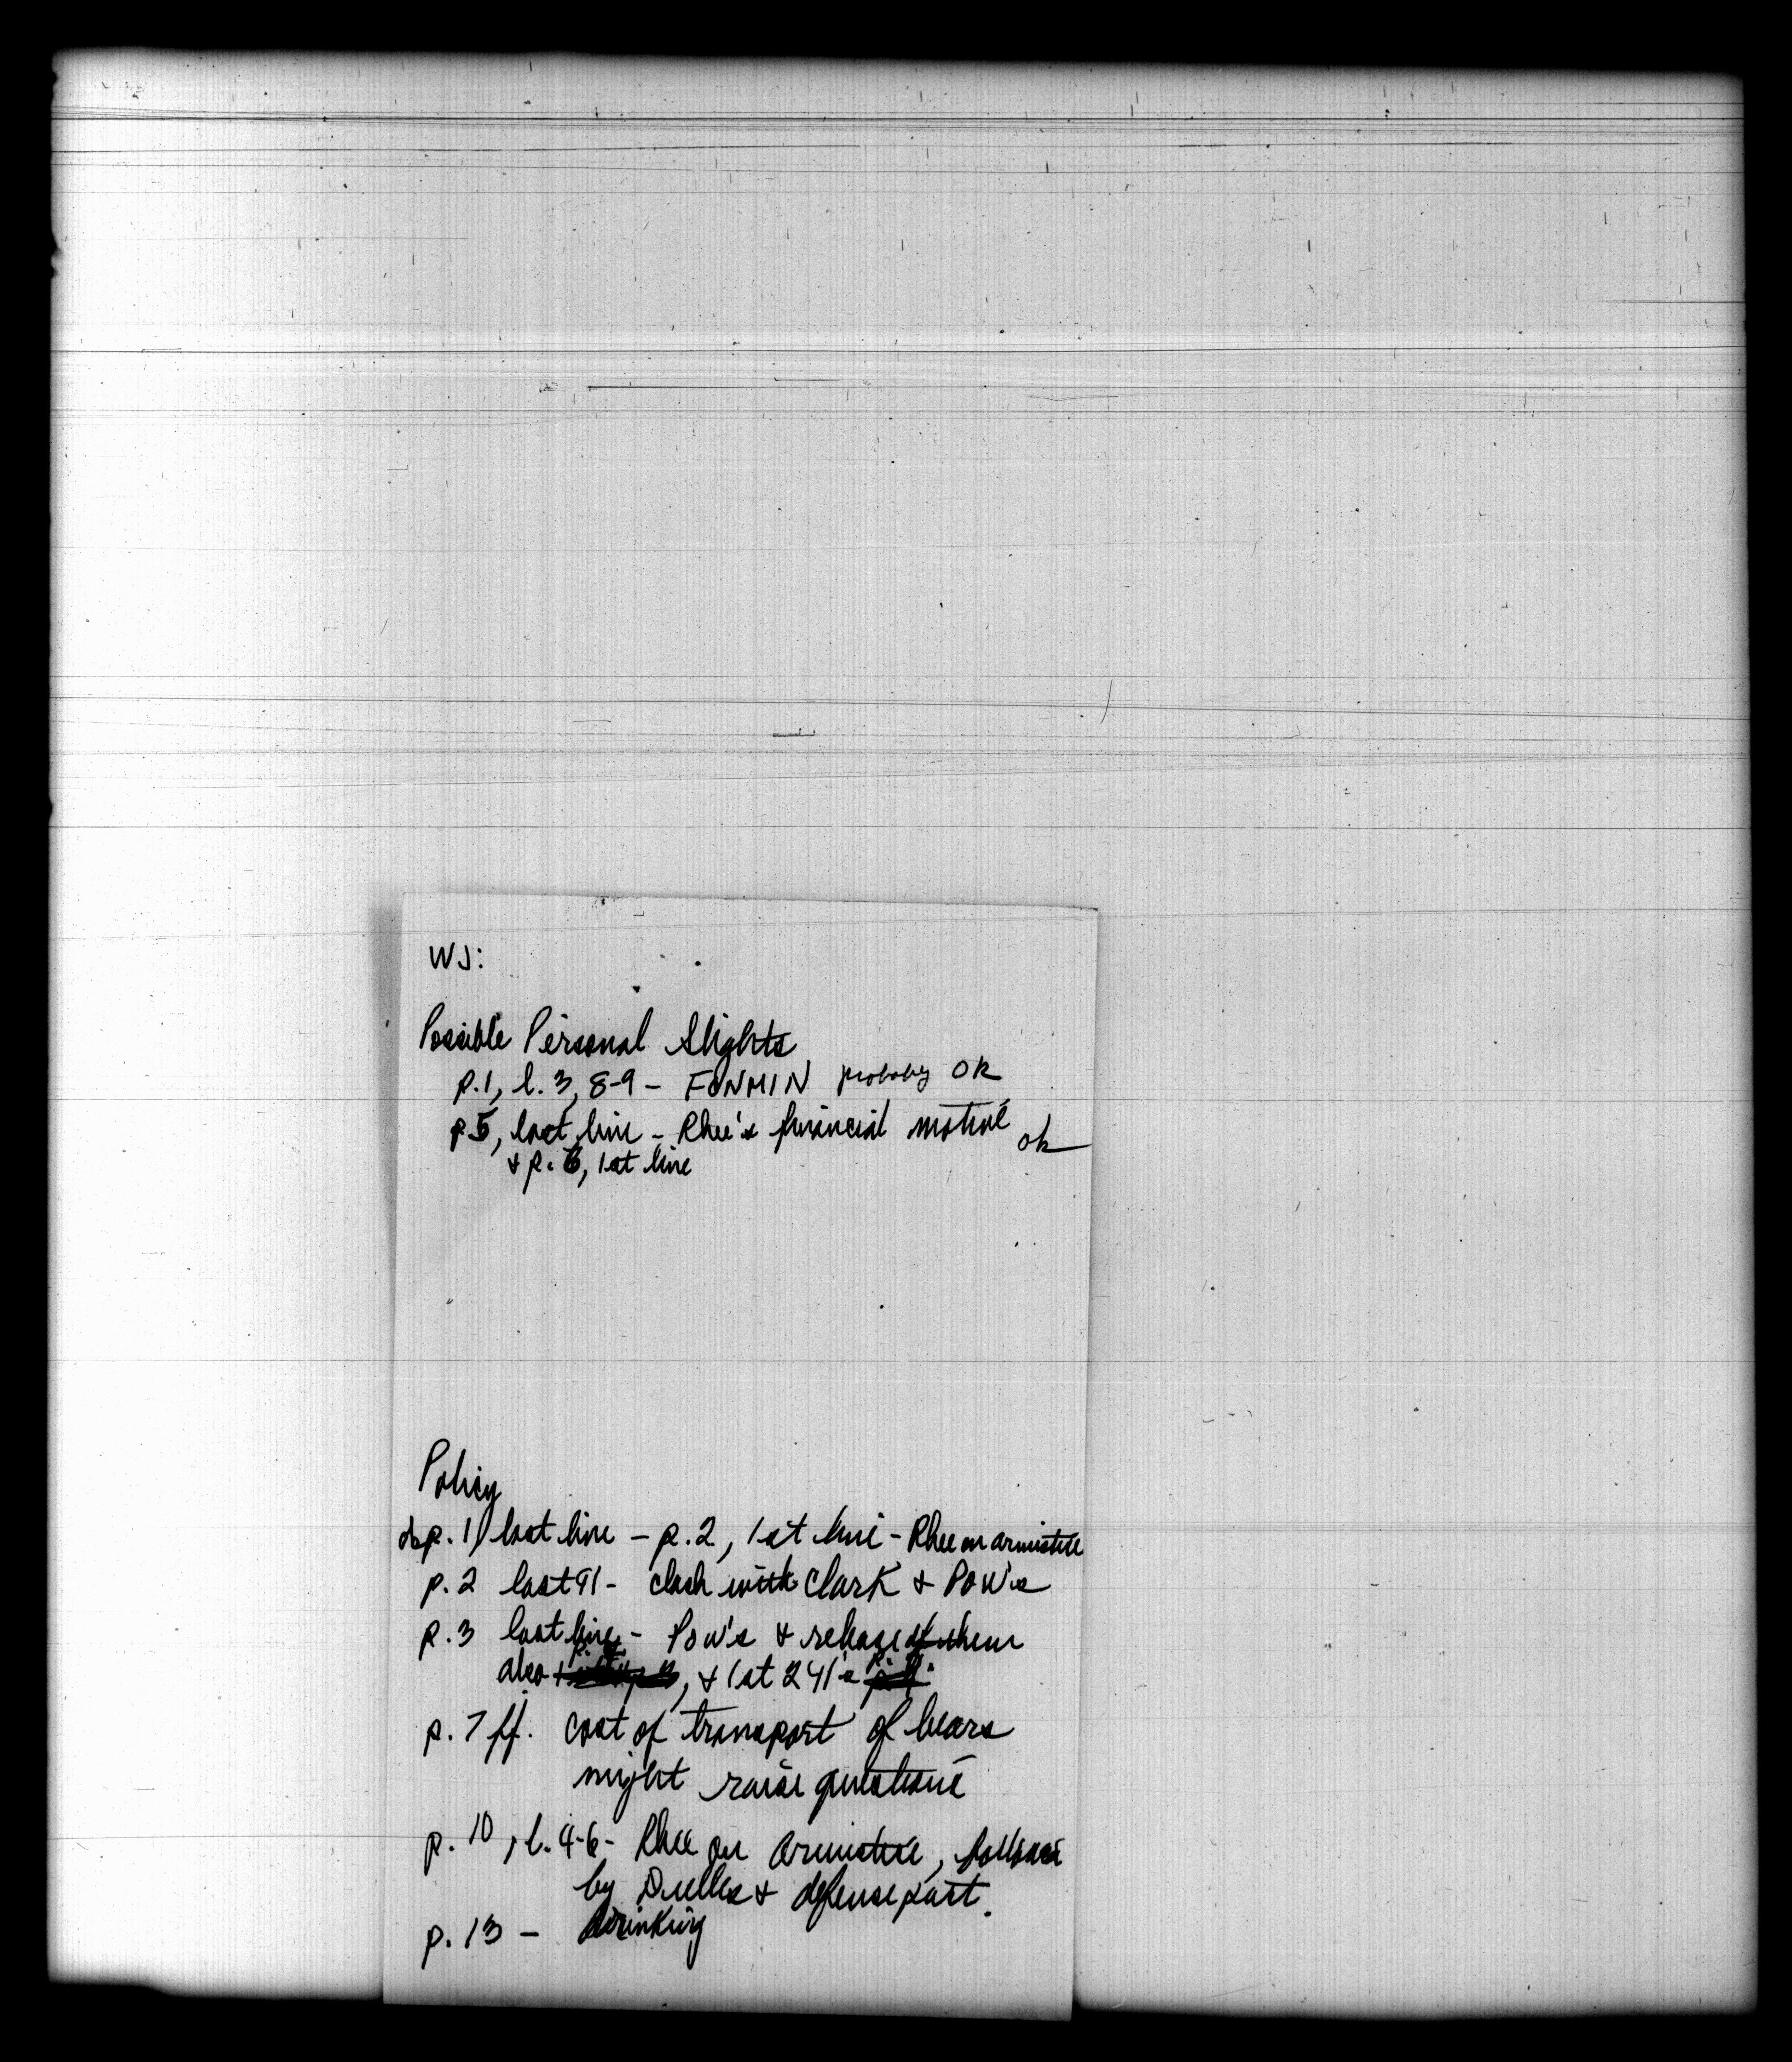 WJ:
Possible Personal Slights
p.1, l. 3, 8-9 - FONMIN probably OK
p5, last line - Rhee's financial motive ok
& p. 6, 1st line
Policy
ok p. 1, last line - p. 2, 1st line - Rhee on armistice
p. 2 last ¶ - clash with Clark & POW's
p. 3 last line - POW's & release of them
also , & 1st 2 ¶'s
p. 7 ff. cost of transport of bears
might raise questions
p. 10, l. 4-6 - Rhee on armistice, followed
by Dulles & defense pact.
p. 13 - drinking